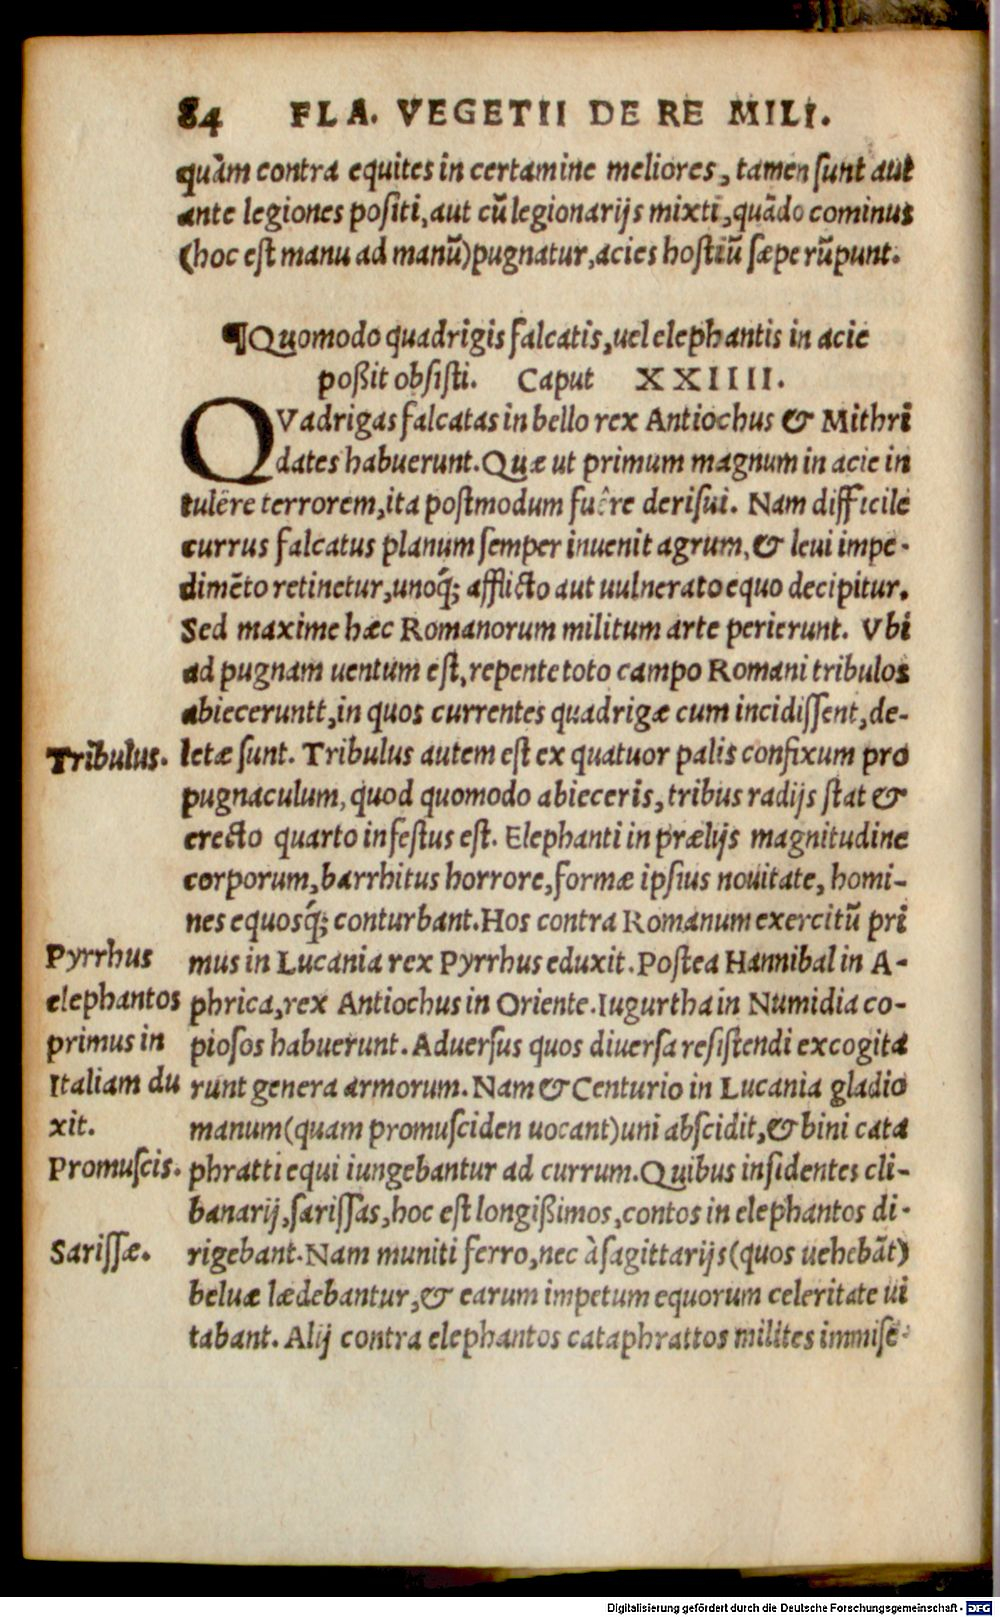 84 FLA. VEGETII DE RE MILI.
quàm contra equites in certamine meliores, tamen sunt aut
ante legiones positi, aut cũ legionarijs mixti, quãdo cominus
(hoc est manu ad manũ) pugnatur, acies hostiũ sæpe rũpunt.
¶Quomodo quadrigis falcatis, uel elephantis in acie
poßit obsisti. Caput XXIIII.
QVadrigas falcatas in bello rex Antiochus & Mithri
dates habuerunt. Quæ ut primum magnum in acie in
tulêre terrorem, ita postmodum fuêre derisui. Nam difficile
currus falcatus planum semper inuenit agrum, & leui impe-
dimẽto retinetur, unoq́; afflicto aut uulnerato equo decipitur.
Sed maxime hæc Romanorum militum arte perierunt. Vbi
ad pugnam uentum est, repente toto campo Romani tribulos
abieceruntt, in quos currentes quadrigæ cum incidissent, de-
Tribulus.
letæ sunt. Tribulus autem est ex quatuor palis confixum pro
pugnaculum, quod quomodo abieceris, tribus radijs stat &
erecto quarto infestus est. Elephanti in prælijs magnitudine
corporum, barrhitus horrore, formæ ipsius nouitate, homi-
nes equosq́; conturbant. Hos contra Romanum exercitũ pri
Pyrrhus
elephantos
primus in
Italiam du
xit.
mus in Lucania rex Pyrrhus eduxit. Postea Hannibal in A-
phrica, rex Antiochus in Oriente. Iugurtha in Numidia co-
piosos habuerunt. Aduersus quos diuersa resistendi excogita
runt genera armorum. Nam & Centurio in Lucania gladio
manum (quam promusciden uocant) uni abscidit, & bini cata
Promuscis.
phratti equi iungebantur ad currum. Quibus insidentes cli-
banarij, sarissas, hoc est longißimos, contos in elephantos di-
Sarissæ.
rigebant. Nam muniti ferro, nec à sagittarijs (quos uehebãt)
beluæ lædebantur, & earum impetum equorum celeritate ui
tabant. Alij contra elephantos cataphrattos milites immise-
Digitalisierung gefördert durch die Deutsche Forschungsgemeinschaft - DFG